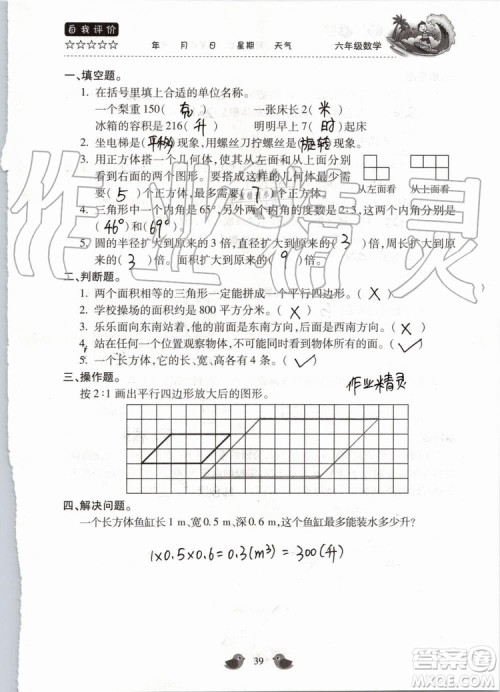 自我评价
☆☆☆☆☆ 年 月 日 星期 天气 六年级数学
一、填空题。
1. 在括号里填上合适的单位名称。
一个梨重150(克) 一张床长2(米)
冰箱的容积是216(升) 明明早上7(时)起床
2. 坐电梯是(平移)现象,用螺丝刀拧螺丝是(旋转)现象。
3. 用正方体搭一个几何体,使其从左面看
和从上面看分别得到右面的图形,至少需
要(5)个正方体,最多需要(7)个正方体。
从左面看 从上面看
4. 三角形中一个内角是65°,另外两个内角的度数是2:3,这两个内角分别是
(46°)和(69°)
5. 圆的半径扩大到原来的3倍,直径扩大到原来的(3)倍,周长扩大到原来
的(3)倍,面积扩大到原来的(9)倍。
二、判断题。
1. 两个面积相等的三角形一定能拼成一个平行四边形。(×)
2. 学校操场的面积约是800平方分米。(×)
3. 乐乐面向东南站着,他的后面是东北方向。(×)
4. 站在任何一个位置观察物体,不能同时看到物体的所有面。(✓)
5. 一个长方体,它的长、宽、高各有4条。(✓)
三、操作题。
作业精灵
按2:1画出平行四边形放大后的图形。
四、解决问题。
一个长方体鱼缸长1 m,宽0.5 m,深0.6 m,这个鱼缸最多能装水多少升?
1×0.5×0.6=0.3(m³)=300(升)
39
作业精灵